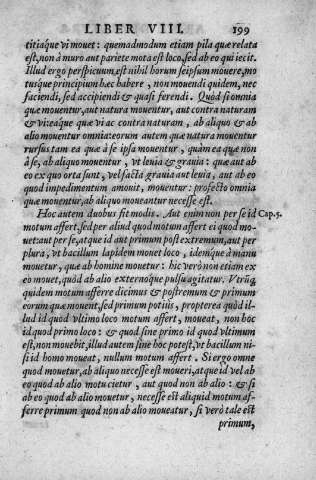 LIBER VIII. 199
titiáq́ue vi mouet: quemadmodum etiam pila quæ relata
est, non à muro aut pariete mota est loco, sed ab eo qui iecit.
Illud ergo perspicuum est nihil horum seipsum mouere, mo
túsque principium hæc habere, non mouendi quidem, nec
faciendi, sed accipiendi & quasi ferendi. Quòd si omnia
quæ mouentur, aut natura mouentur, aut contra naturam
& vi: eáque quæ vi ac contra naturam, ab aliquo & ab
alio mouentur omnia: eorum autem quæ natura mouentur
rursus tam ea quæ à se ipsa mouentur, quàm ea quæ non
à se, ab aliquo mouentur, vt leuia & grauia: quæ aut ab
eo ex quo orta sunt, vel facta grauia aut leuia, aut ab eo
quod impedimentum amouit, mouentur: profecto omnia
quæ mouentur, ab aliquo moueantur necesse est.
Hoc autem duobus fit modis. Aut enim non per se id Cap. 5.
motum affert, sed per aliud quod motum affert ei quod mo-
uet: aut per se, atque id aut primum post extremum, aut per
plura, vt bacillum lapidem mouet loco, idémque à manu
mouetur, quæ ab homine mouetur: hic verò non etiam ex
eo mouet, quòd ab alio externóque pulsu agitatur. Vtrúq;
quidem motum afferre dicimus & postremum & primum
eorum quæ mouent, sed primum potius, propterea quòd il-
lud id quod vltimo loco motum affert, moueat, non hoc
id quod primo loco: & quod sine primo id quod vltimum
est, non mouebit, illud autem sine hoc potest, vt bacillum ni-
si id homo moueat, nullum motum affert. Si ergo omne
quod mouetur, ab aliquo necesse est moueri, atque id vel ab
eo quod ab alio motu cietur, aut quod non ab alio: & si
ab eo quod ab alio mouetur, necesse est aliquid motum af-
ferre primum quod non ab alio moueatur, si verò tale est
primum,